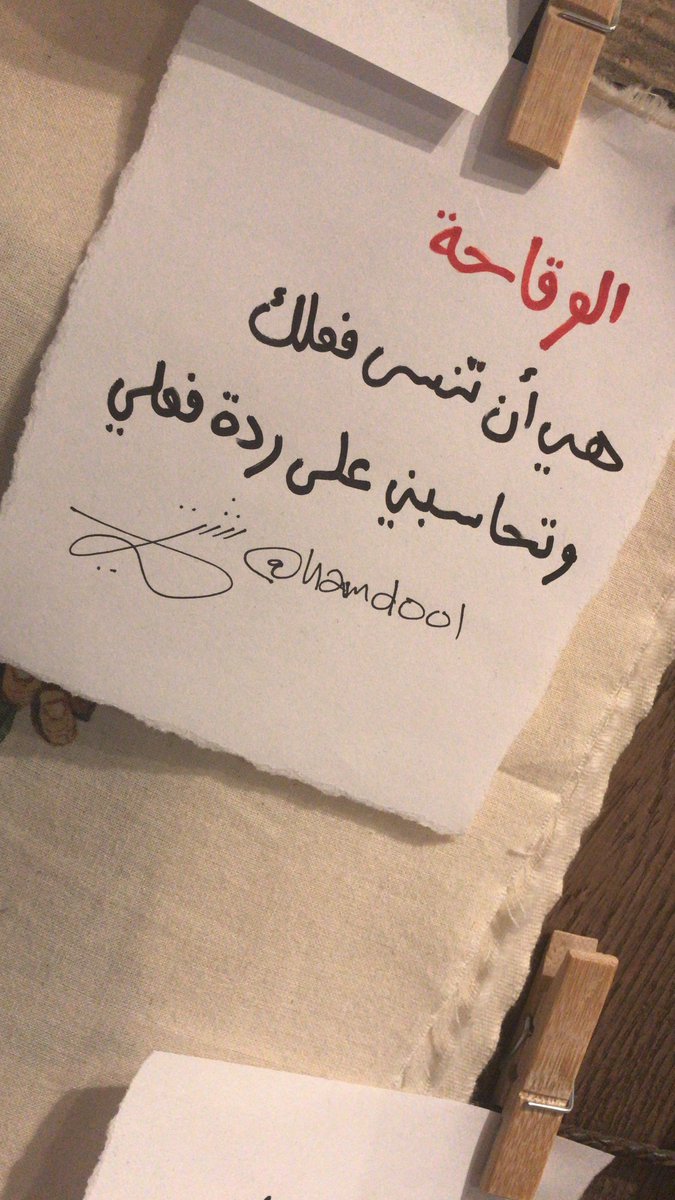 الوقاحة
هي أن تنسى فعلك
وتحاسبني على ردة فعلي
@hamdool